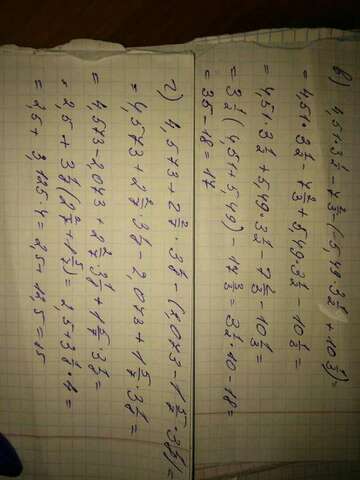 в) 4,51·3 1/2 - 7 2/3 - (-5,49·3 1/2 + 10 1/3) =
= 4,51·3 1/2 - 7 2/3 + 5,49·3 1/2 - 10 1/3 =
= 4,51·3 1/2 + 5,49·3 1/2 - 7 2/3 - 10 1/3 =
= 3 1/2 (4,51 + 5,49) - 17 3/3 = 3 1/2·10 - 18 =
= 35 - 18 = 17
г) 4,573 + 2 2/7 · 3 1/8 - (2,073 - 1 5/7 · 3 1/8) =
= 4,573 + 2 2/7 · 3 1/8 - 2,073 + 1 5/7 · 3 1/8 =
= 4,573 - 2,073 + 2 2/7 · 3 1/8 + 1 5/7 · 3 1/8 =
= 2,5 + 3 1/8 (2 2/7 + 1 5/7) = 2,5 + 3 1/8 · 4 =
= 2,5 + 3,125·4 = 2,5 + 12,5 = 15